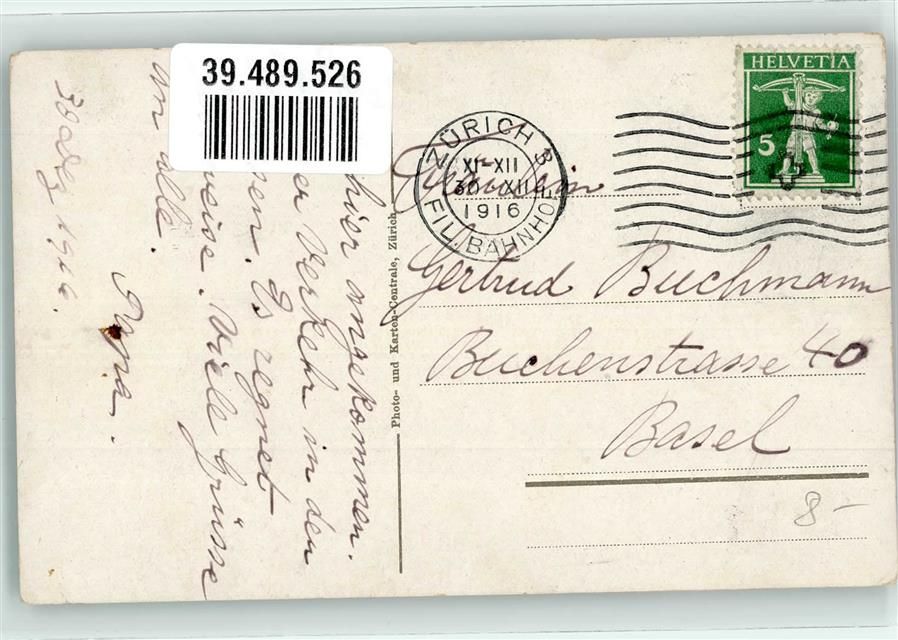 39.489.526
HELVETIA
5
ZÜRICH 3
XI-XII
30 XII
1916
FIL. BAHNHOF
Gertrud Buchmann
Buchenstrasse 40
Basel
8-
Photo- und Karten-Centrale, Zürich
hier angekommen.
Verkehr in den
Es regnet
weise. Viele Grüsse
an alle.
Papa.
30 Dez 1916.